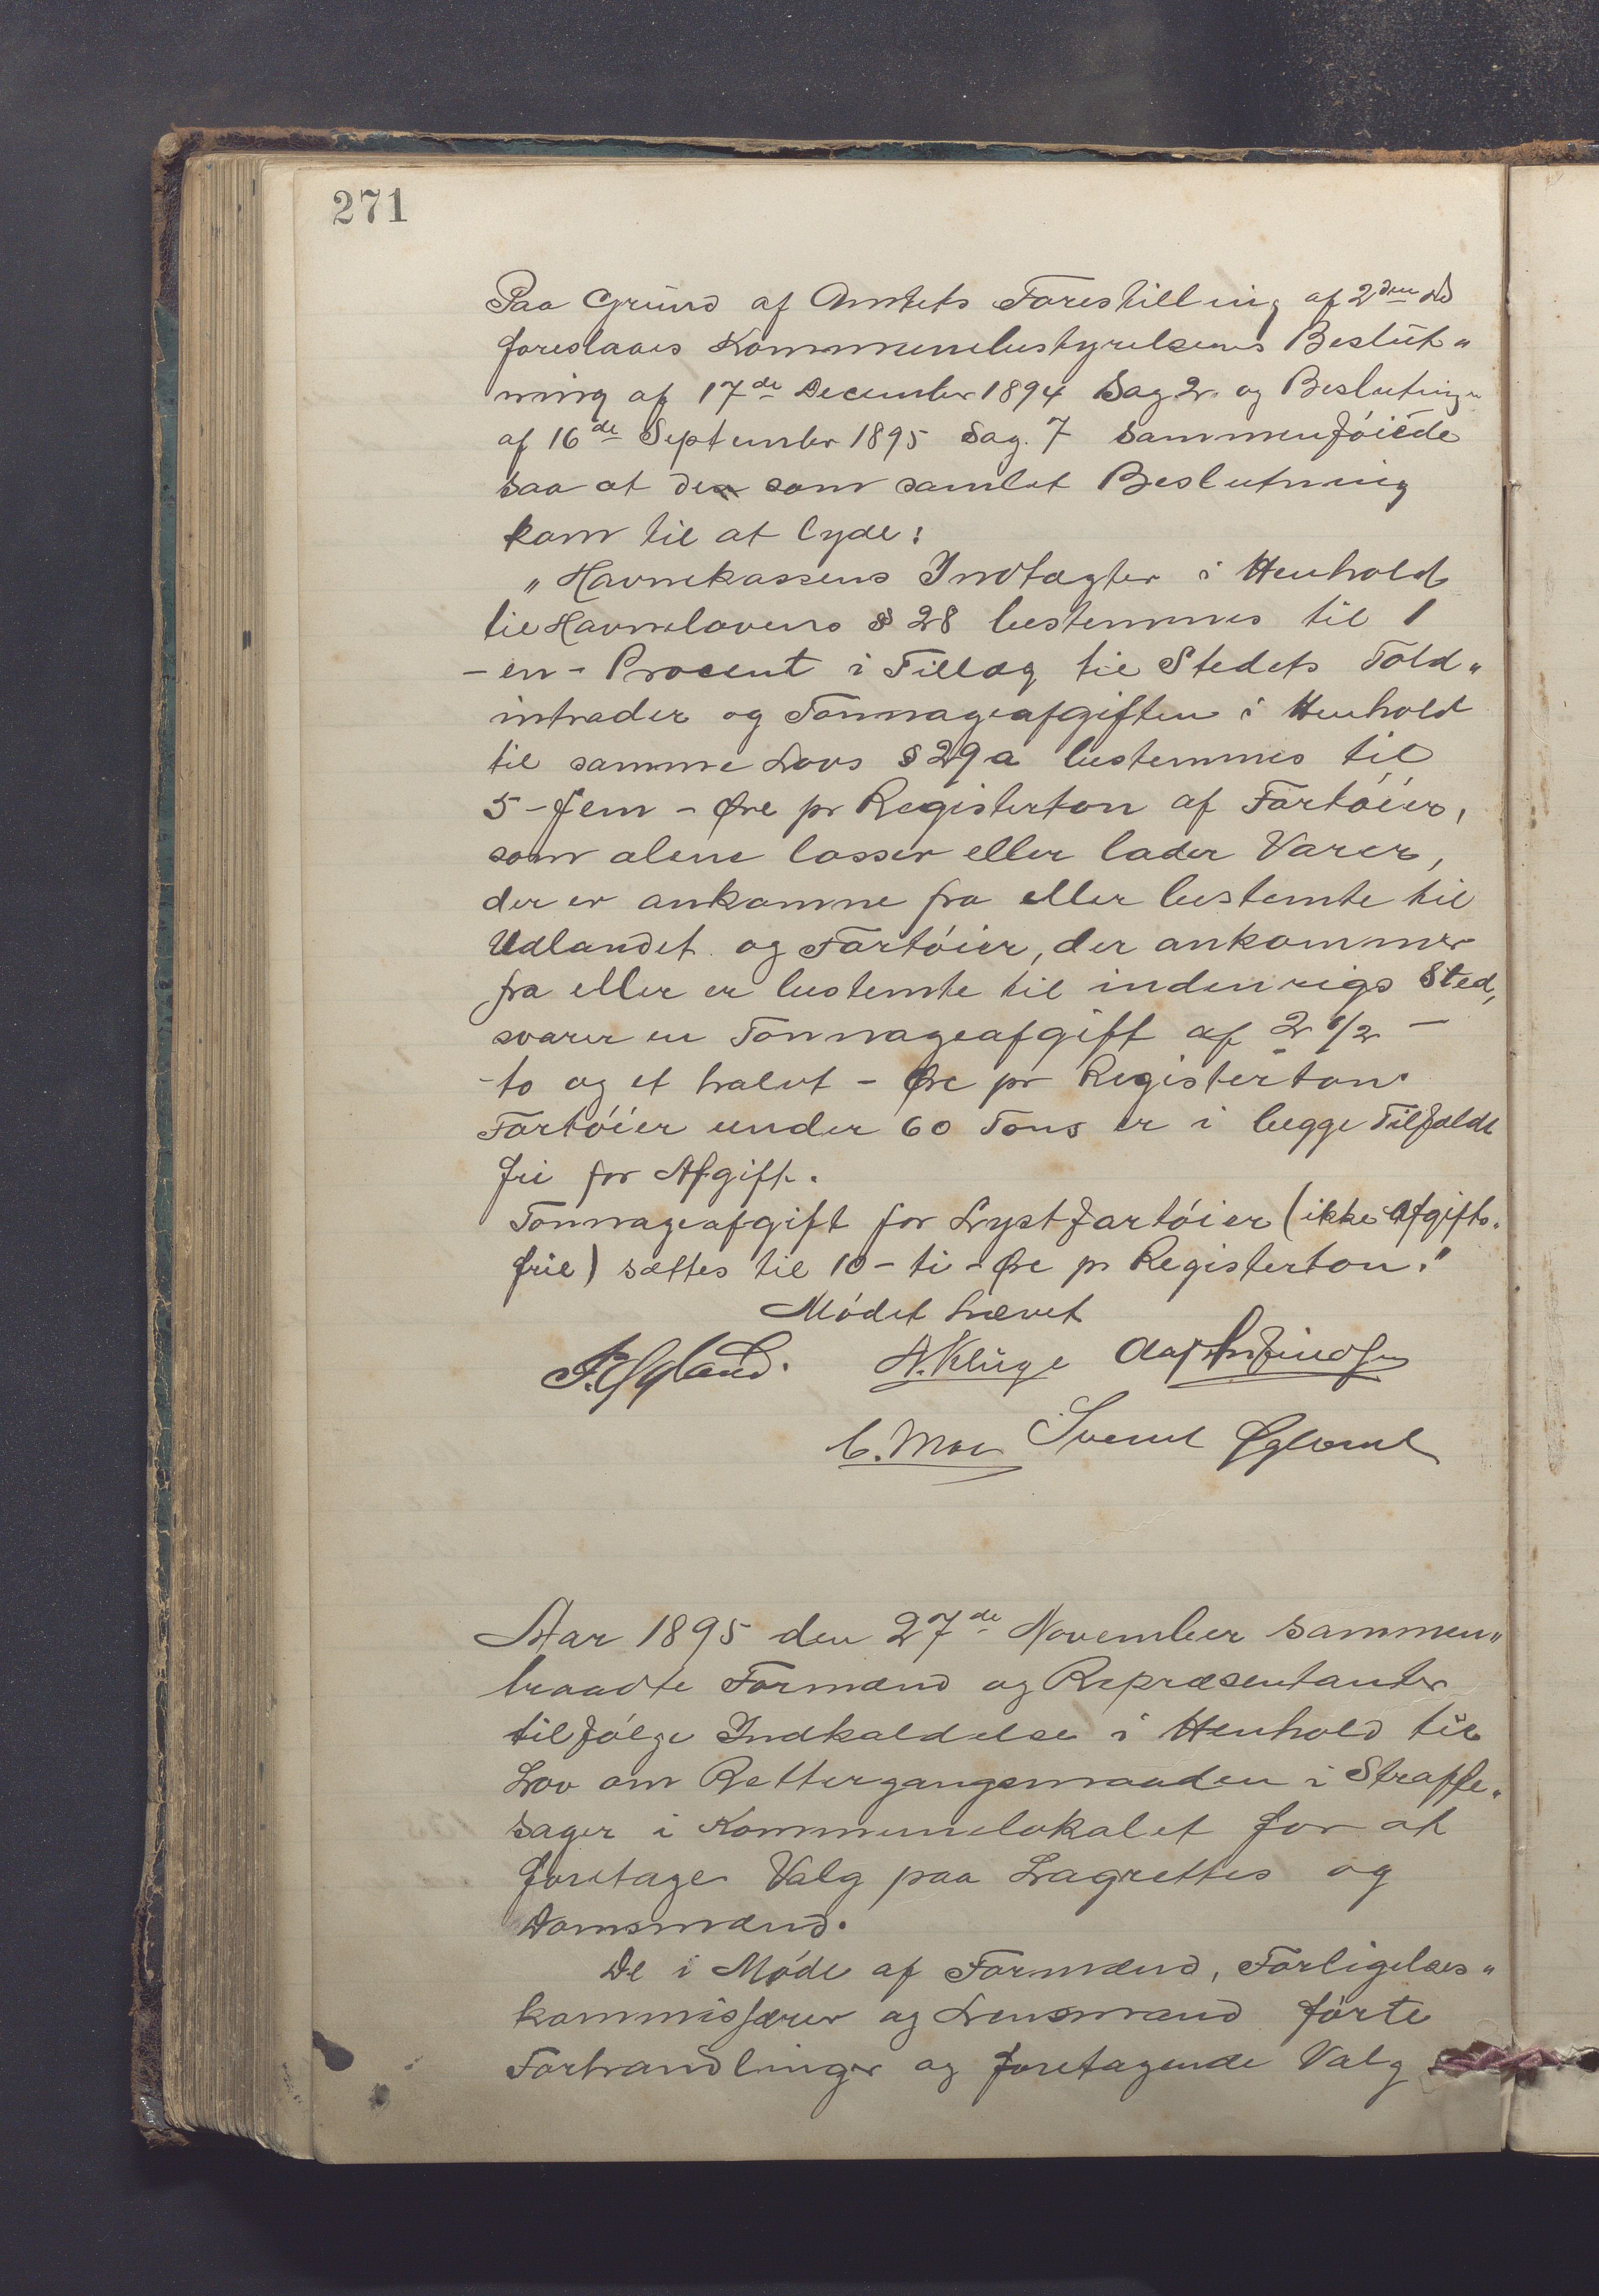 271
Paa Grund af Amtets Forestilling af 2den ds
foreslaaes Kommunebestyrelsens Beslut„
ning af 17de December 1894 Sag 2 og Beslutning
af 16de September 1895 Sag. 7 sammenføiede
saa at den som samlet Beslutning
kom til at lyde:
„Havnekassens Indtægter i Henhold
til Havnelovens § 28 bestemmes til 1
- en - Procent i Tillæg til Stedets Told„
intrader og Tonnageafgiften i Henhold
til samme Lovs § 29 a bestemmes til
5 - fem - Øre pr Registerton af Fartøier,
som alene losser eller lader Varer,
der er ankomne fra eller bestemte til
Udlandet og Fartøier, der ankommer
fra eller er bestemte til indenrigs Sted,
svarer en Tonnageafgift af 2 1/2 -
- to og et halvt - Øre pr Registerton.
Fartøier under 60 Tons er i begge Tilfælde
fri for Afgift.
Tonnageafgift for Lystfartøier (ikke Afgifts„
frie) sættes til 10 - ti - Øre pr Registerton."
Mødet hævet
A. Kluge
C. Moe Svend Øglænd
Aar 1895 den 27de November sammen„
traadte Formænd og Repræsentanter
tilfølge Indkaldelse i Henhold til
Lov om Rettergangsmaaden i Straffe„
sager i Kommunelokalet for at
foretage Valg paa Lagrettes og
Domsmænd.
De i Møde af Formænd, Forligelses„
kommissærer og Lensmand førte
Forhandlinger og foretagende Valg